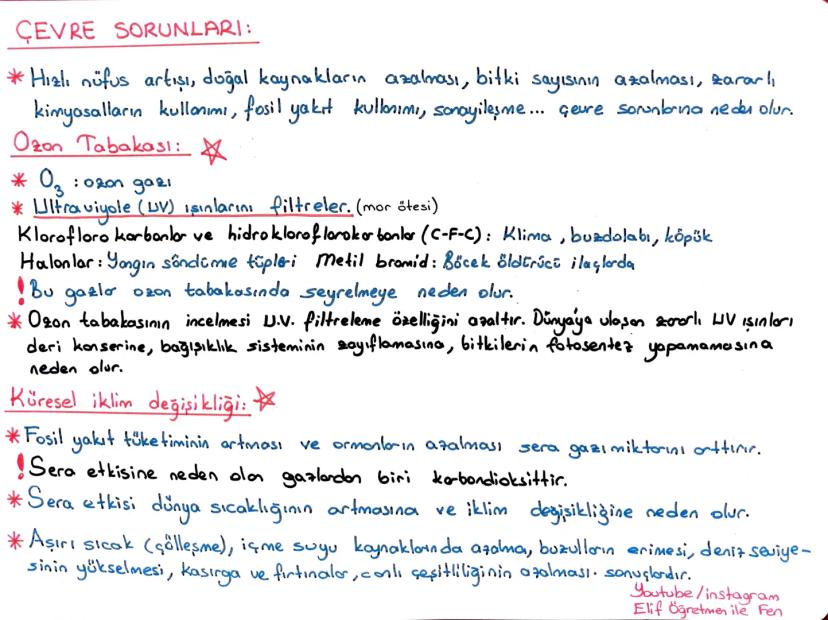 ÇEVRE SORUNLARI:
* Hızlı nüfus artışı, doğal kaynakların azalması, bitki sayısının azalması, zararlı
kimyasalların kullanımı, fosil yakıt kullanımı, sanayileşme... çevre sorunlarına neden olur.
Ozon Tabakası:
* O₃ : ozon gazı
* Ultraviyole (UV) ışınlarını filtreler. (mor ötesi)
Klorofloro karbonlar ve hidrokloroflorokarbonlar (C-F-C): Klima, buzdolabı, köpük
Halonlar: Yangın söndürme tüpleri Metil bromid: Böcek öldürücü ilaçlarda
! Bu gazlar ozon tabakasında seyrelmeye neden olur.
* Ozon tabakasının incelmesi U.V. filtreleme özelliğini azaltır. Dünya'ya ulaşan zararlı UV ışınları
deri kanserine, bağışıklık sisteminin zayıflamasına, bitkilerin fotosentez yapamamasına
neden olur.
Küresel iklim değişikliği:
* Fosil yakıt tüketiminin artması ve ormanların azalması sera gazı miktarını arttırır.
! Sera etkisine neden olan gazlardan biri karbondioksittir.
* Sera etkisi dünya sıcaklığının artmasına ve iklim değişikliğine neden olur.
* Aşırı sıcak (çölleşme), içme suyu kaynaklarında azalma, buzulların erimesi, deniz seviye-
sinin yükselmesi, kasırga ve fırtınalar, canlı çeşitliliğinin azalması. sonuçlarıdır.
Youtube/instagram
Elif Öğretmen ile Fen